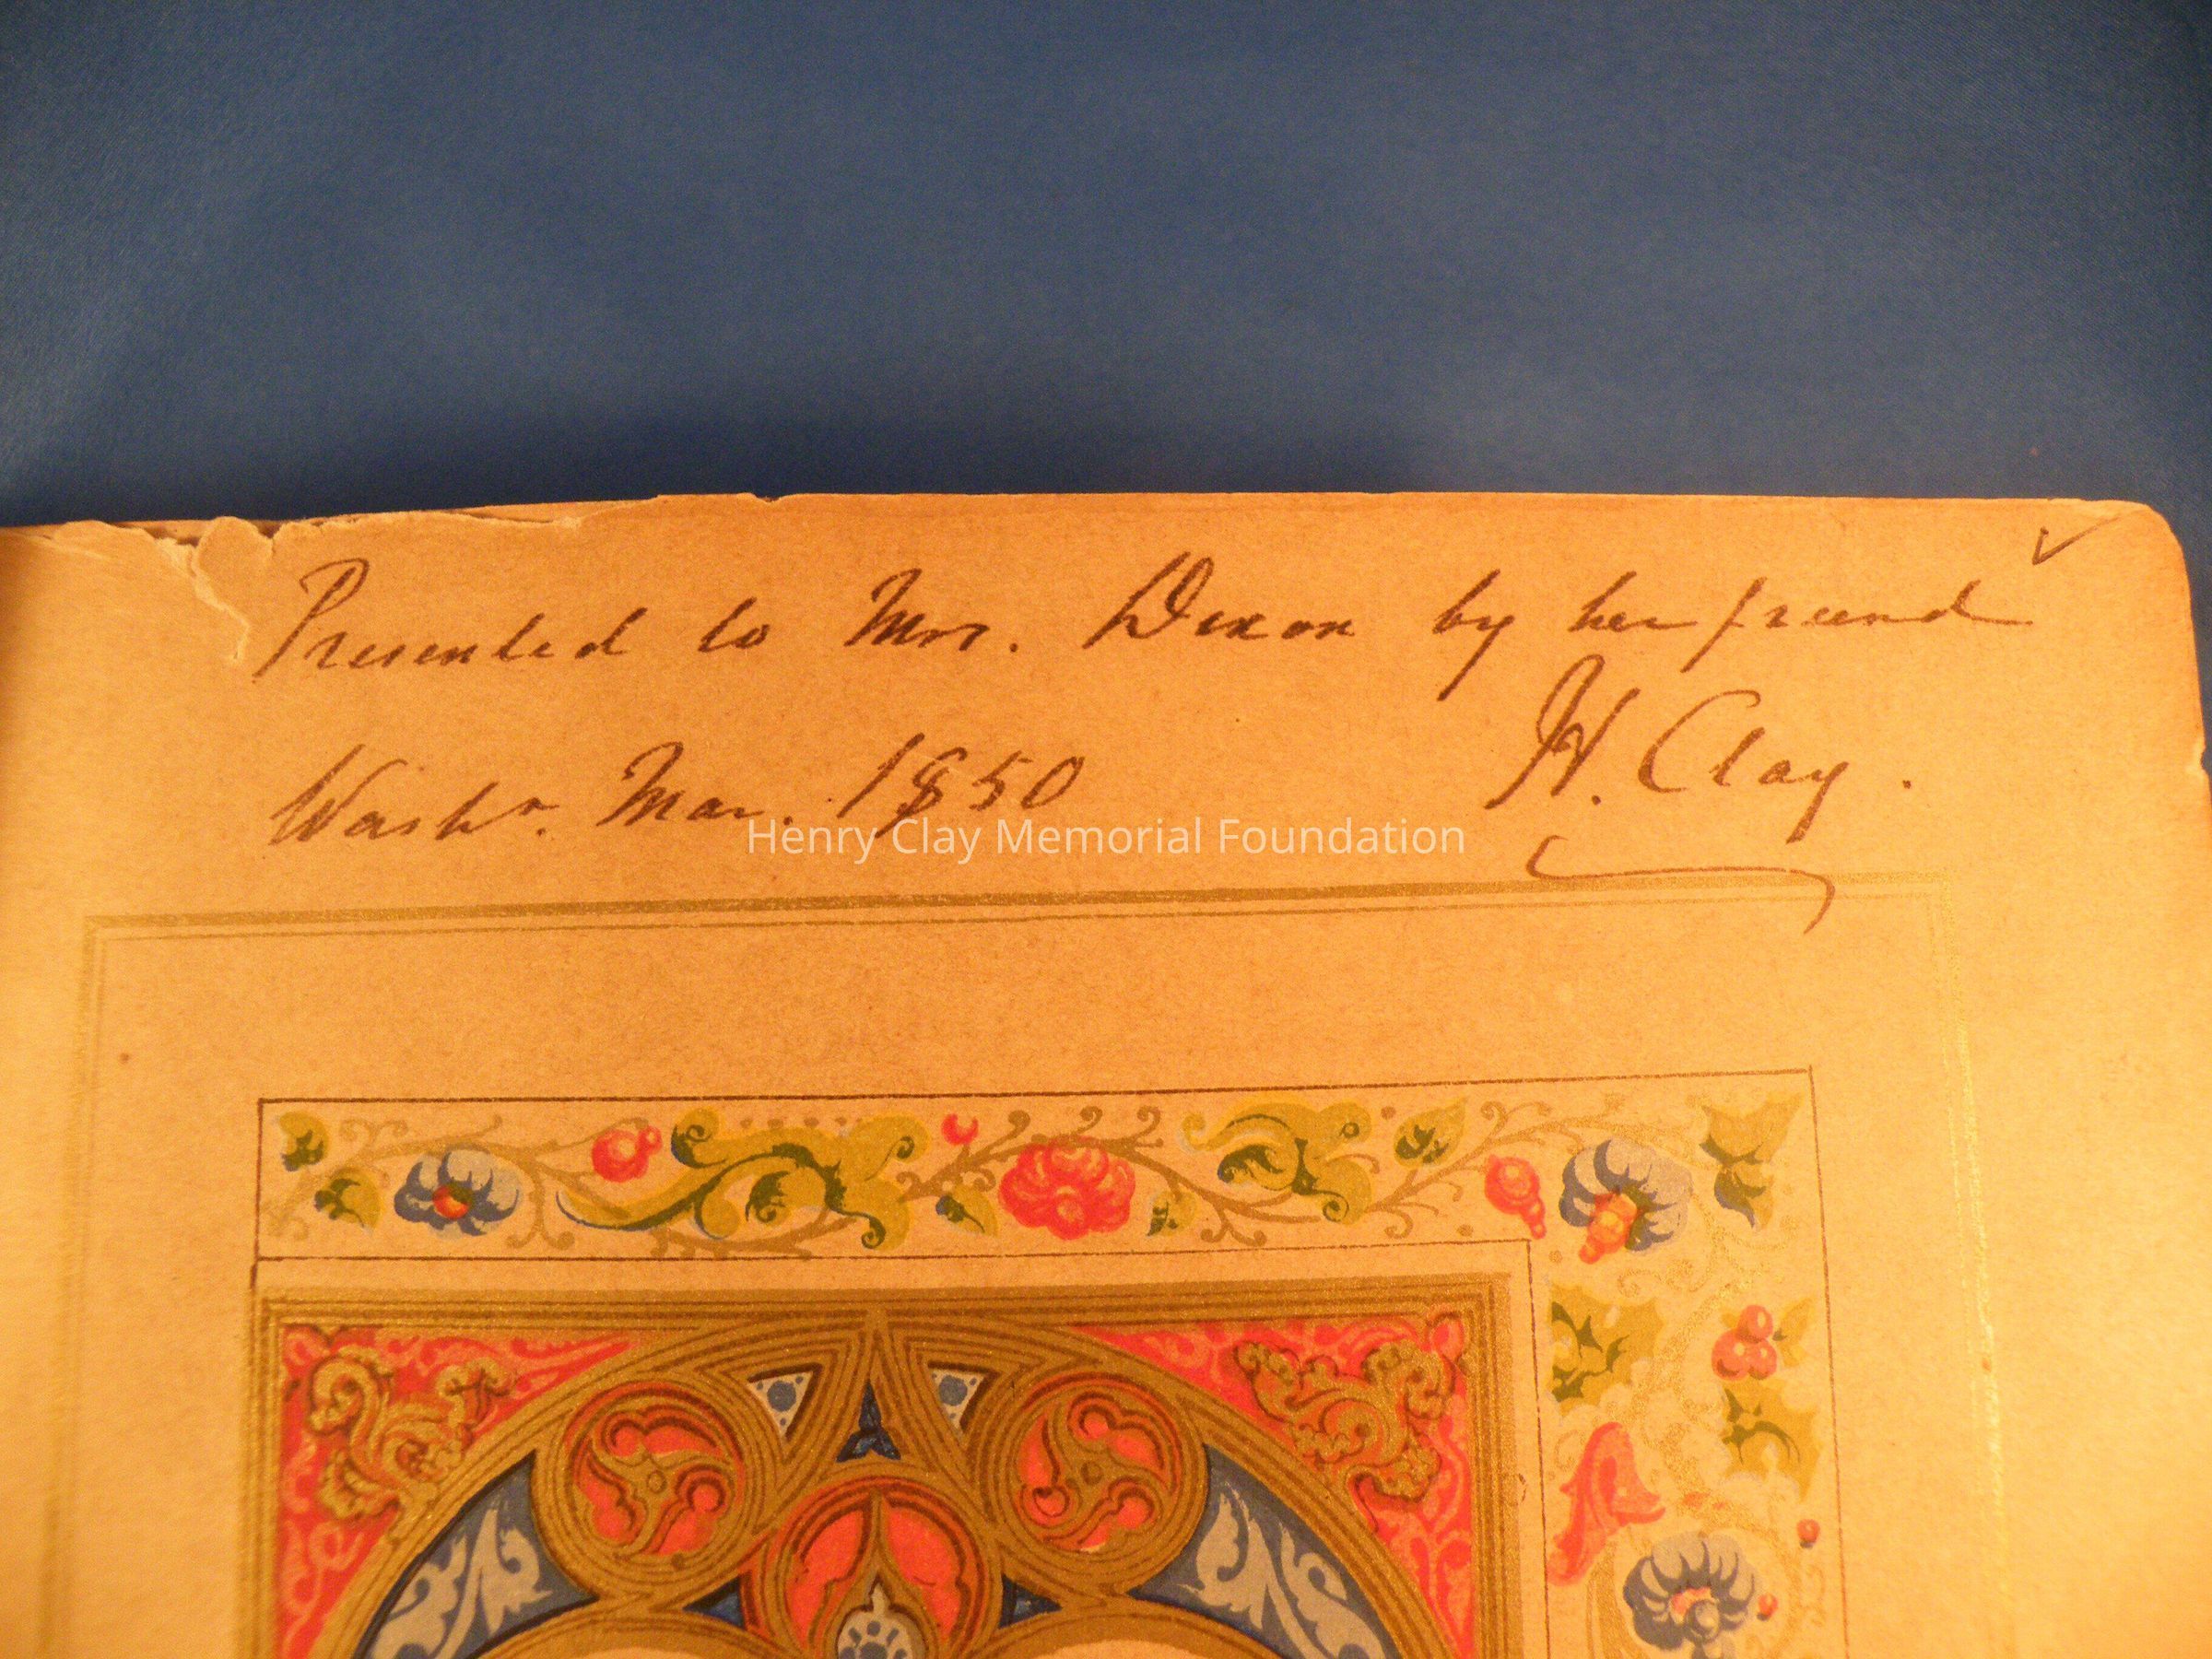 Presented to Mrs. Dixon by her friend
H. Clay.
Washn. Mar. 1850
Henry Clay Memorial Foundation